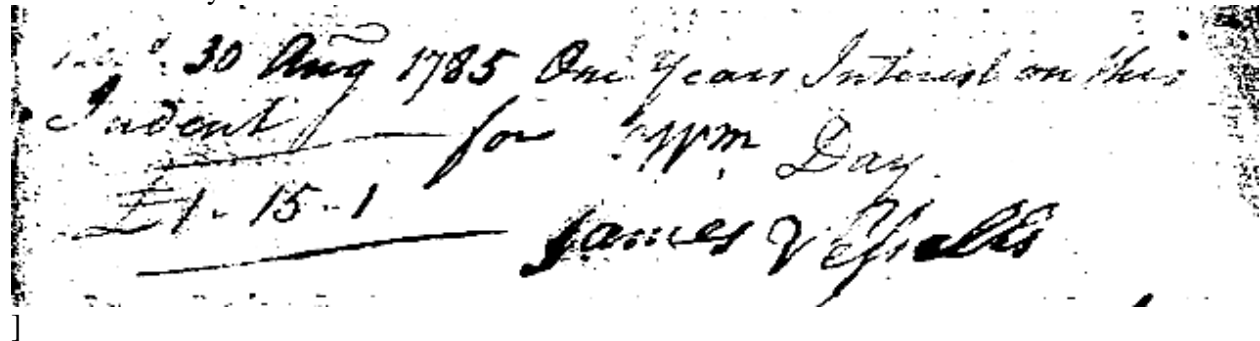 Rec.d 30 Aug 1785 One Years Interest on this
Indent for Wm. Day
£1-15-1
James Vessells
]